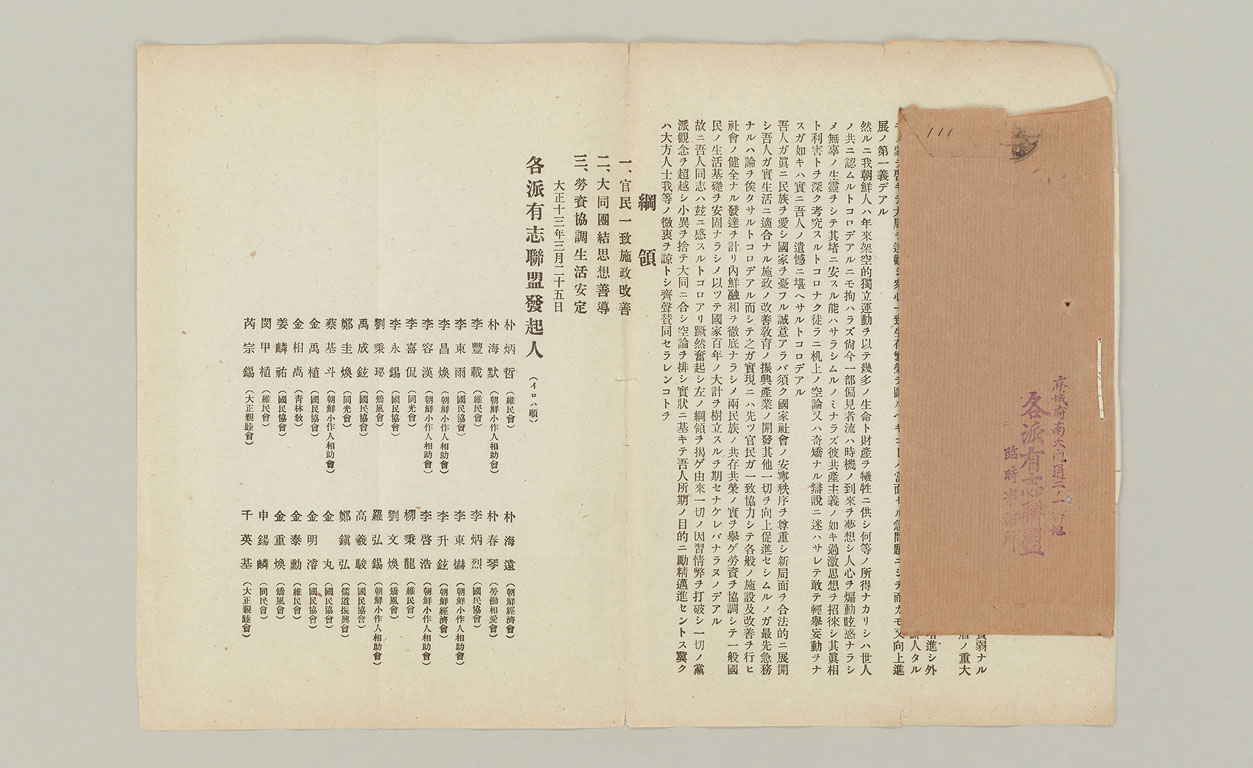 京城府南大門通二ノ一一番地
各派有志聯盟
臨時事務所
貧弱ナル
展ノ第一義デアル
然ルニ我朝鮮人ハ年来架空的獨立運動ヲ以テ幾多ノ生命ト財產ヲ犠牲ニ供シ何等ノ所得ナカリシハ世人
ノ共ニ認ムルトコロデアルニモ拘ハラズ尙今一部偏見者流ハ時機ノ到来ヲ夢想シ人心ヲ煽動眩惑ナラシ
メ無辜ノ生靈ヲシテ其堵ニ安スル能ハサラシムルノミナラズ彼共產主義ノ如キ過激思想ヲ招徠シ其眞相
ト利害トヲ深ク考究スルトコロナク徒ラニ机上ノ空論又ハ奇矯ナル辯說ニ迷ハサレテ敢テ輕擧妄動ヲナ
スガ如キハ實ニ吾人ノ遺憾ニ堪ヘサルトコロデアル
吾人ガ眞ニ民族ヲ愛シ國家ヲ憂フル誠意アラバ須ク國家社會ノ安寧秩序ヲ尊重シ新局面ヲ合法的ニ展開
シ吾人ガ實生活ニ適合ナル施政ノ改善敎育ノ振興產業ノ開發其他一切ヲ向上促進セシムルノガ最先急務
ナルハ論ヲ俟タサルトコロデアル而シテ之ガ實現ニハ先ヅ官民ガ一致協力シテ各般ノ施設及改善ヲ行ヒ
社會ノ健全ナル發達ヲ計リ內鮮融和ヲ徹底ナラシメ兩民族ノ共存共榮ノ實ヲ擧ゲ勞資ヲ協調シテ一般國
民ノ生活基礎ヲ安固ナラシメ以ツテ國家百年ノ大計ヲ樹立スルヲ期セナケレバナラヌノデアル
故ニ吾人同志ハ玆ニ感スルトコロアリ蹶然奮起シ左ノ綱領ヲ揭ゲ由来一切ノ因習情弊ヲ打破シ一切ノ黨
派觀念ヲ超越シ小異ヲ捨テ大同ニ合シ空論ヲ排シ實狀ニ基キテ吾人所期ノ目的ニ勵精邁進セントス冀ク
ハ大方人士我等ノ微衷ヲ諒トシ齊聲贊同セラレンコトヲ
綱領
一、官民一致施政改善
二、大同團結思想善導
三、勞資協調生活安定
大正十三年三月二十五日
各派有志聯盟發起人（イロハ順）
朴炳哲（維民會） 朴海遠（朝鮮經濟會）
朴海默（朝鮮小作人相助會） 朴春琴（勞働相愛會）
李豐載（維民會） 李炳烈（國民協會）
李東雨（國民協會） 李東爀（朝鮮小作人相助會）
李昌煥（朝鮮小作人相助會） 李升鉉（朝鮮經濟會）
李容漢（朝鮮小作人相助會） 李啓浩（朝鮮小作人相助會）
李喜侃（同光會） 柳秉龍（維民會）
李永錫（國民協會） 劉文煥（矯風會）
劉秉珌（矯風會） 羅弘錫（朝鮮小作人相助會）
禹成鉉（國民協會） 高羲駿（國民協會）
鄭圭煥（同光會） 鄭鎭弘（儒道振興會）
蔡基斗（朝鮮小作人相助會） 金丸（國民協會）
金禹植（國民協會） 金明濬（國民協會）
金相卨（靑林敎） 金泰勳（維民會）
姜麟祐（國民協會） 金重煥（矯風會）
閔甲植（維民會） 申錫麟（同民會）
芮宗錫（大正親睦會） 千英基（大正親睦會）